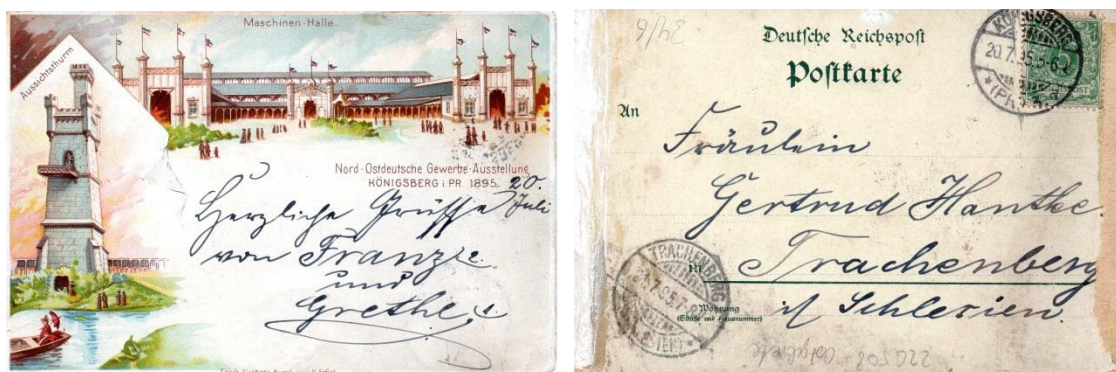 Maschinen-Halle.
Aussichtsthurm
Nord-Ostdeutsche Gewerbe-Ausstellung
KÖNIGSBERG i. PR. 1895.
20. Juli
Herzliche Grüsse
von Franz
und
Grethe.
Deutsche Reichspost
Postkarte
An
Fräulein
Gertrud Hantke.
in Trachenberg
Wohnung
(Straße und Hausnummer)
i/ Schlesien.
KÖNIGSBERG
20.7.95.5-6
(PR.)
TRACHENBERG